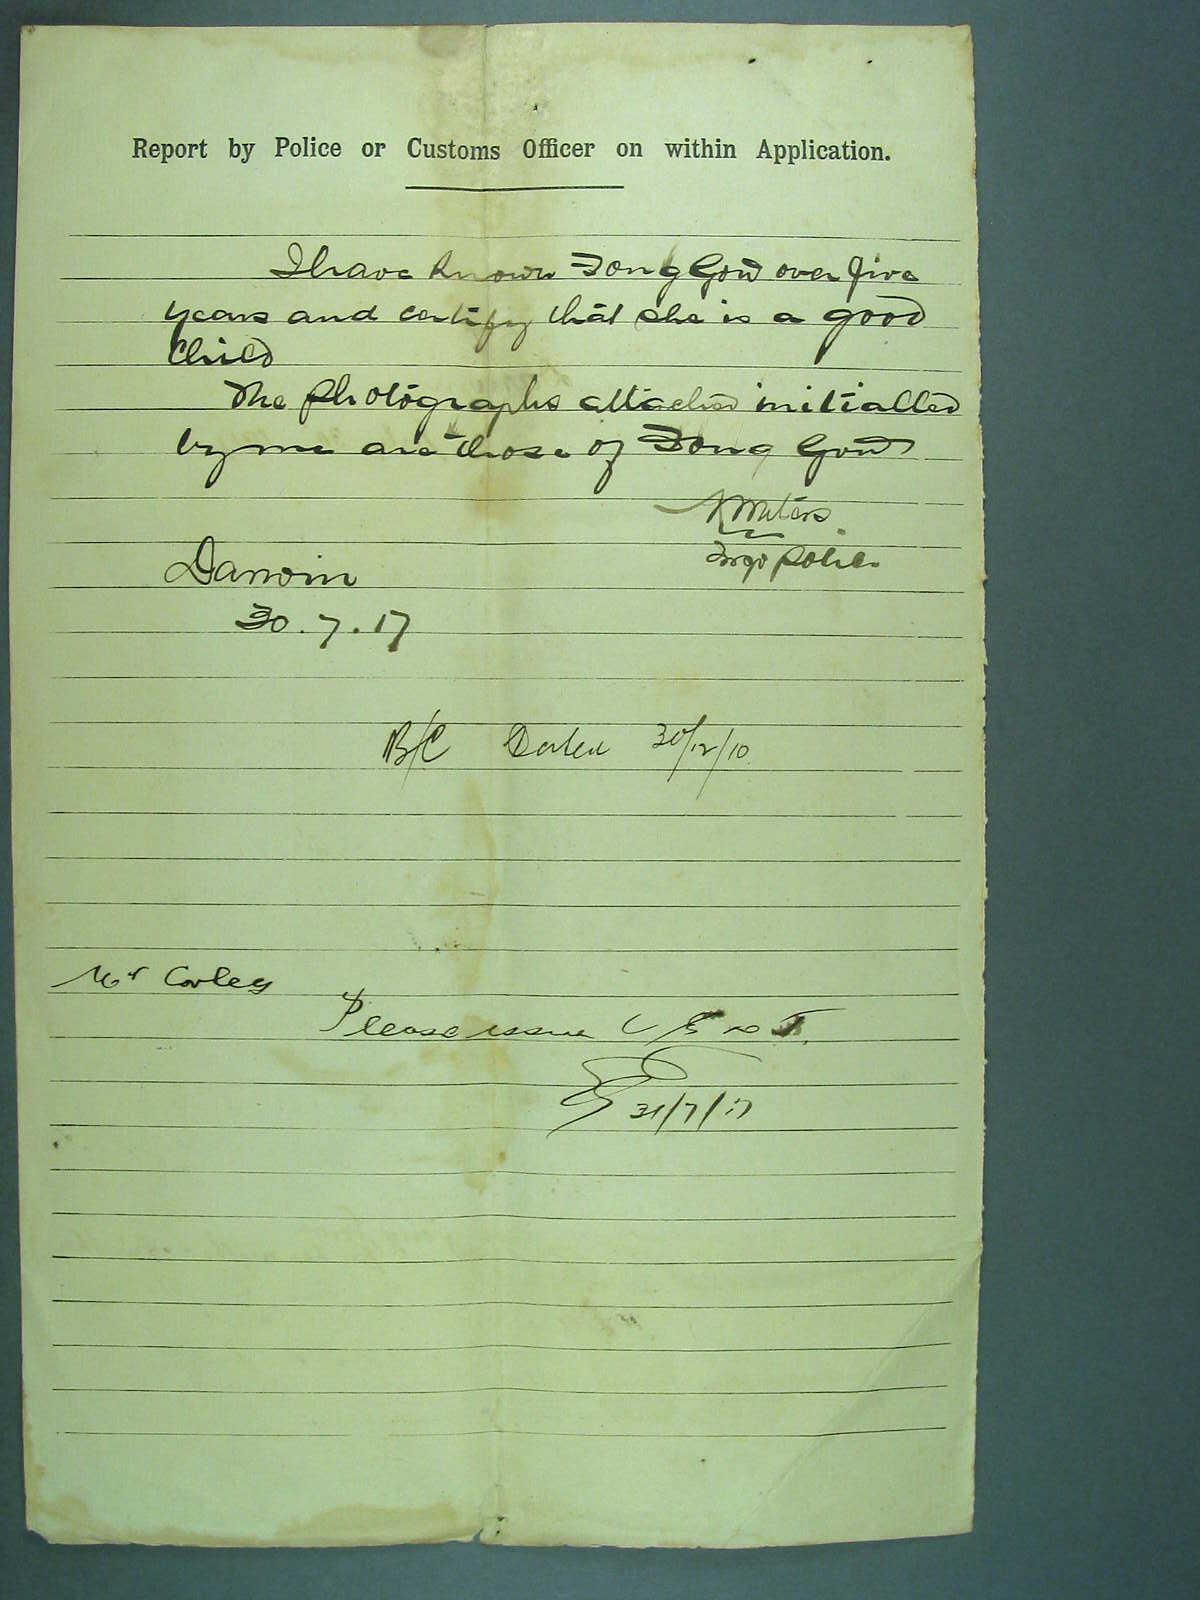 Report by Police or Customs Officer on within Application.
I have known Fong Gow over five
years and certify that she is a good
Child
The photographs attached initialled
by me are those of Fong Gow
N Waters
Police
Darwin
30.7.17
B/C Dated 30/12/10
Mr Corley
Please issue
31/7/17